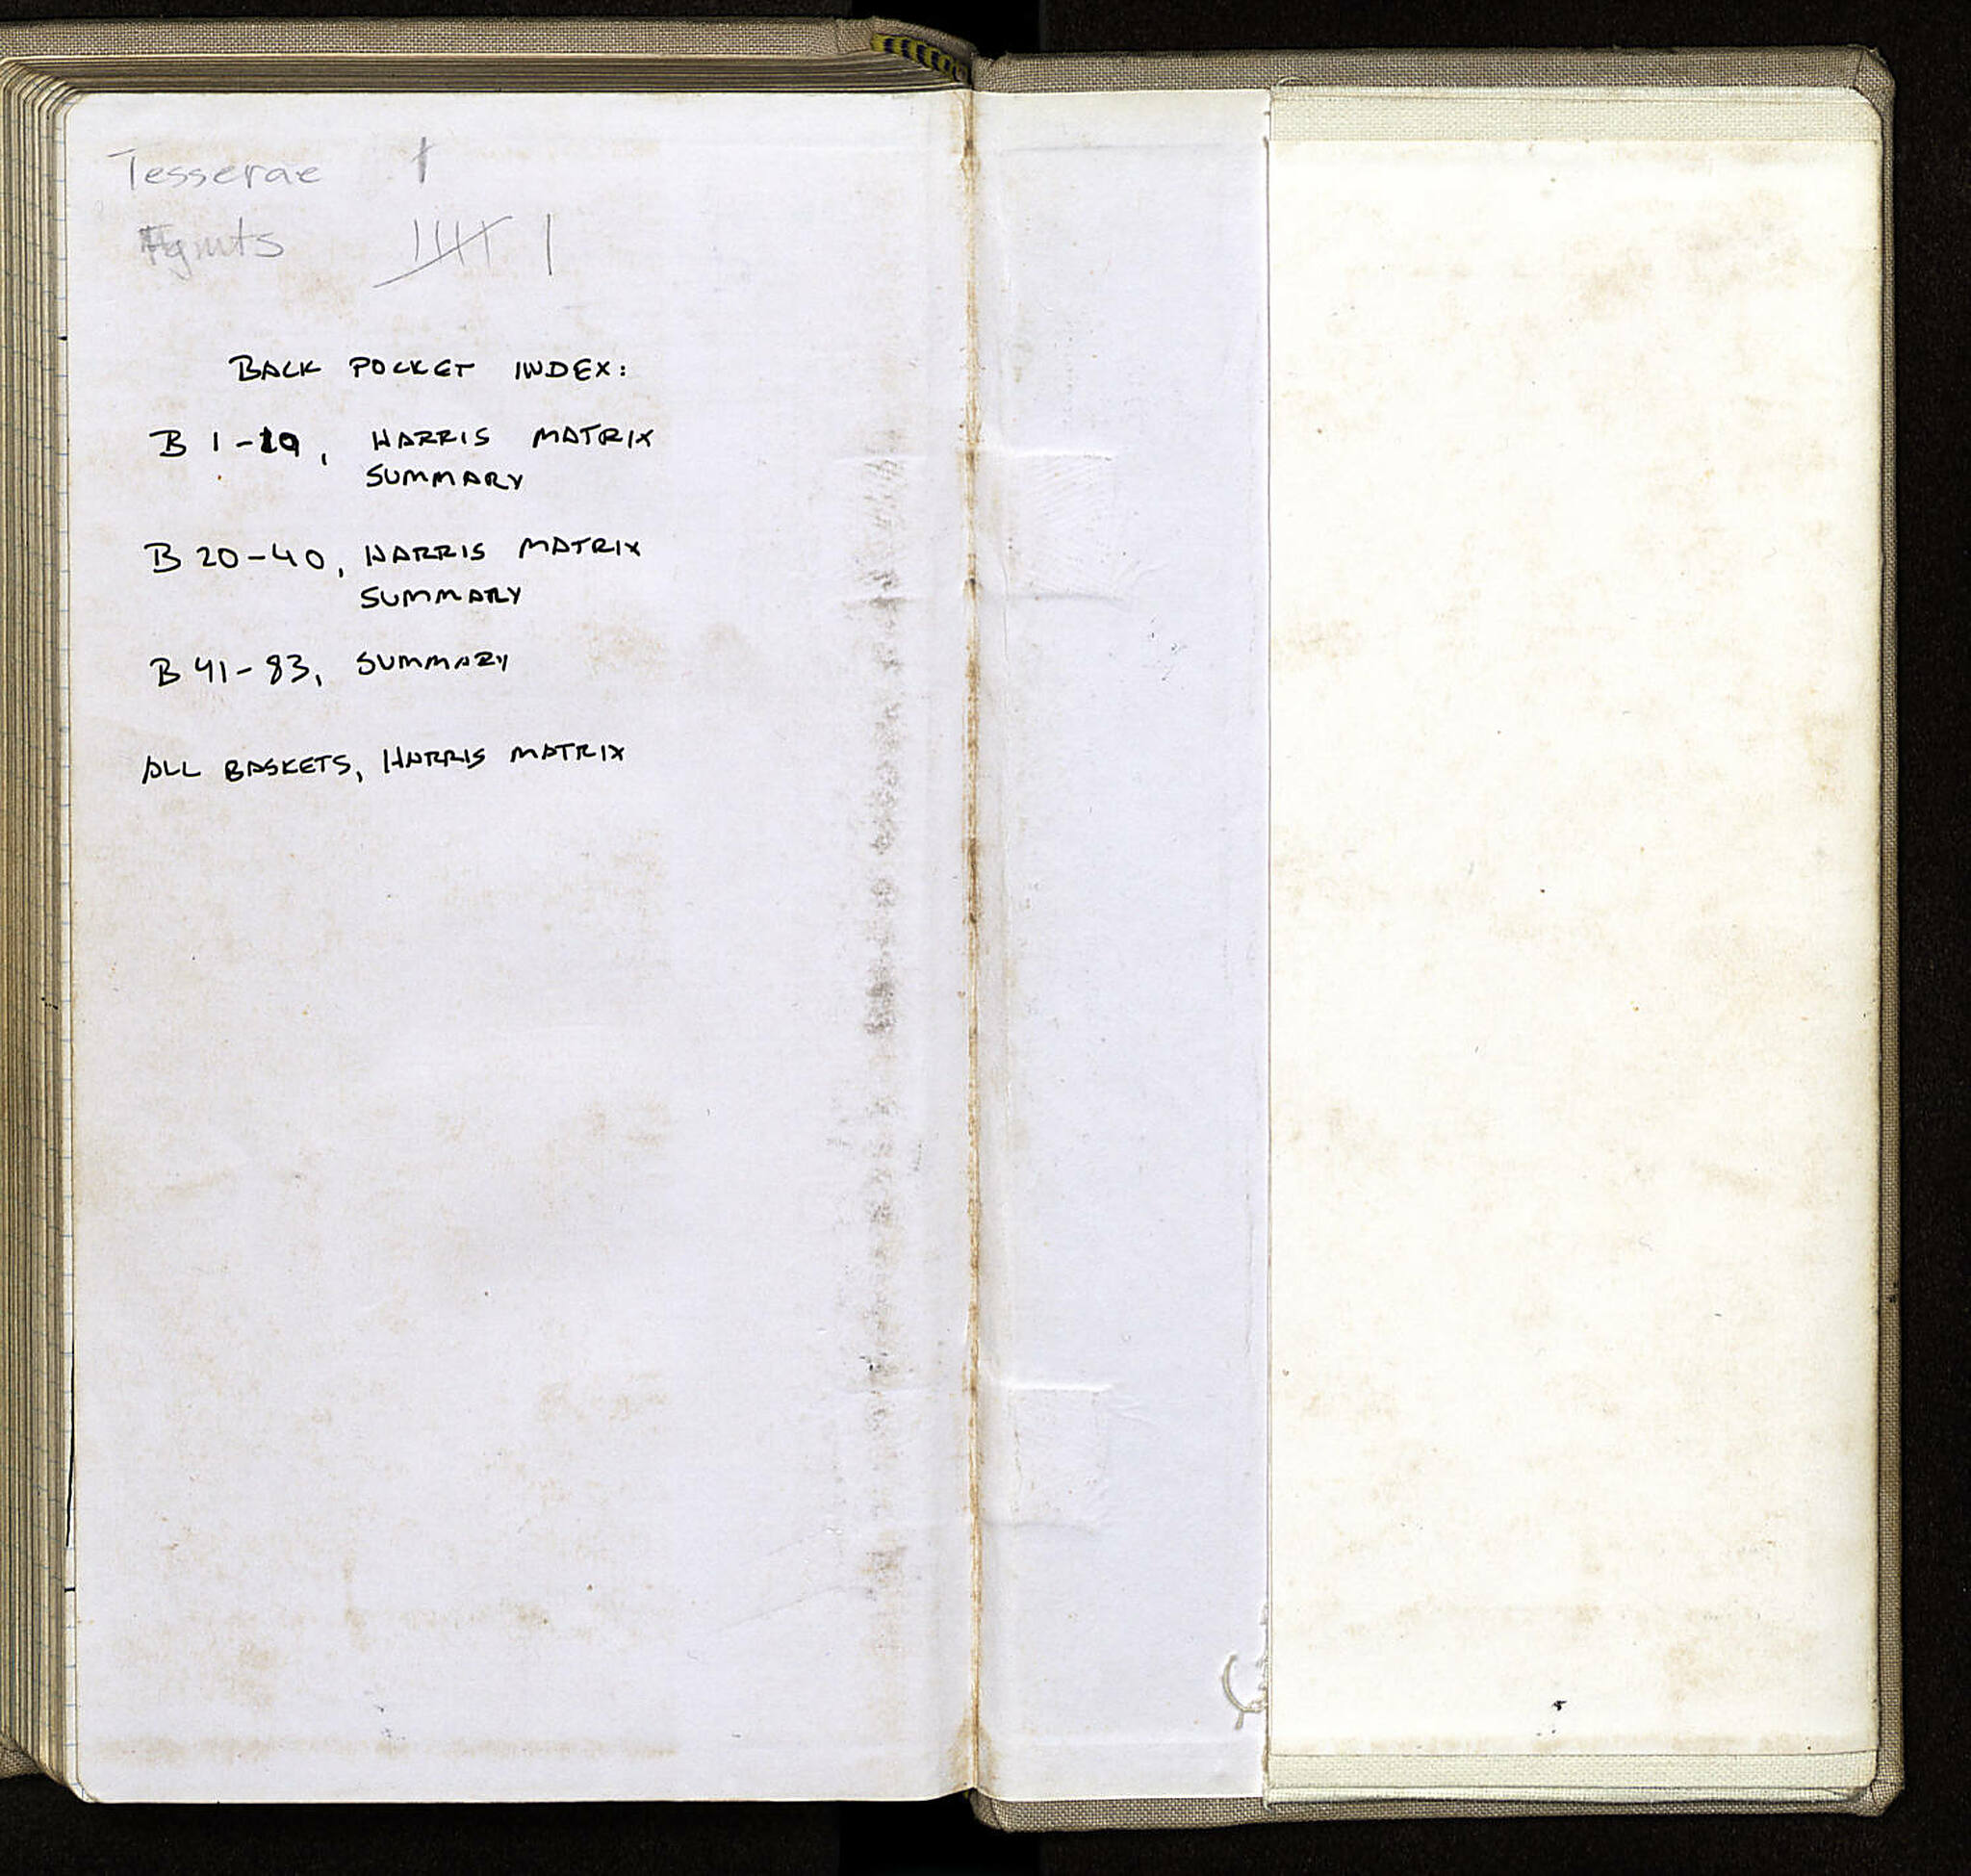 Tesserae I
Fgmts IIII I
BACK POCKET INDEX:
B 1-19, HARRIS MATRIX
SUMMARY
B 20-40, HARRIS MATRIX
SUMMARY
B 41-83, SUMMARY
ALL BASKETS, HARRIS MATRIX